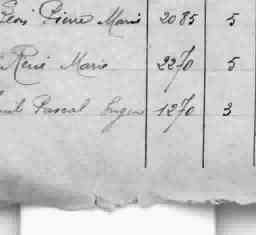 Léon Pierre Marie 2085 5
René Marie 2270 5
Pascal Eugène 1270 3